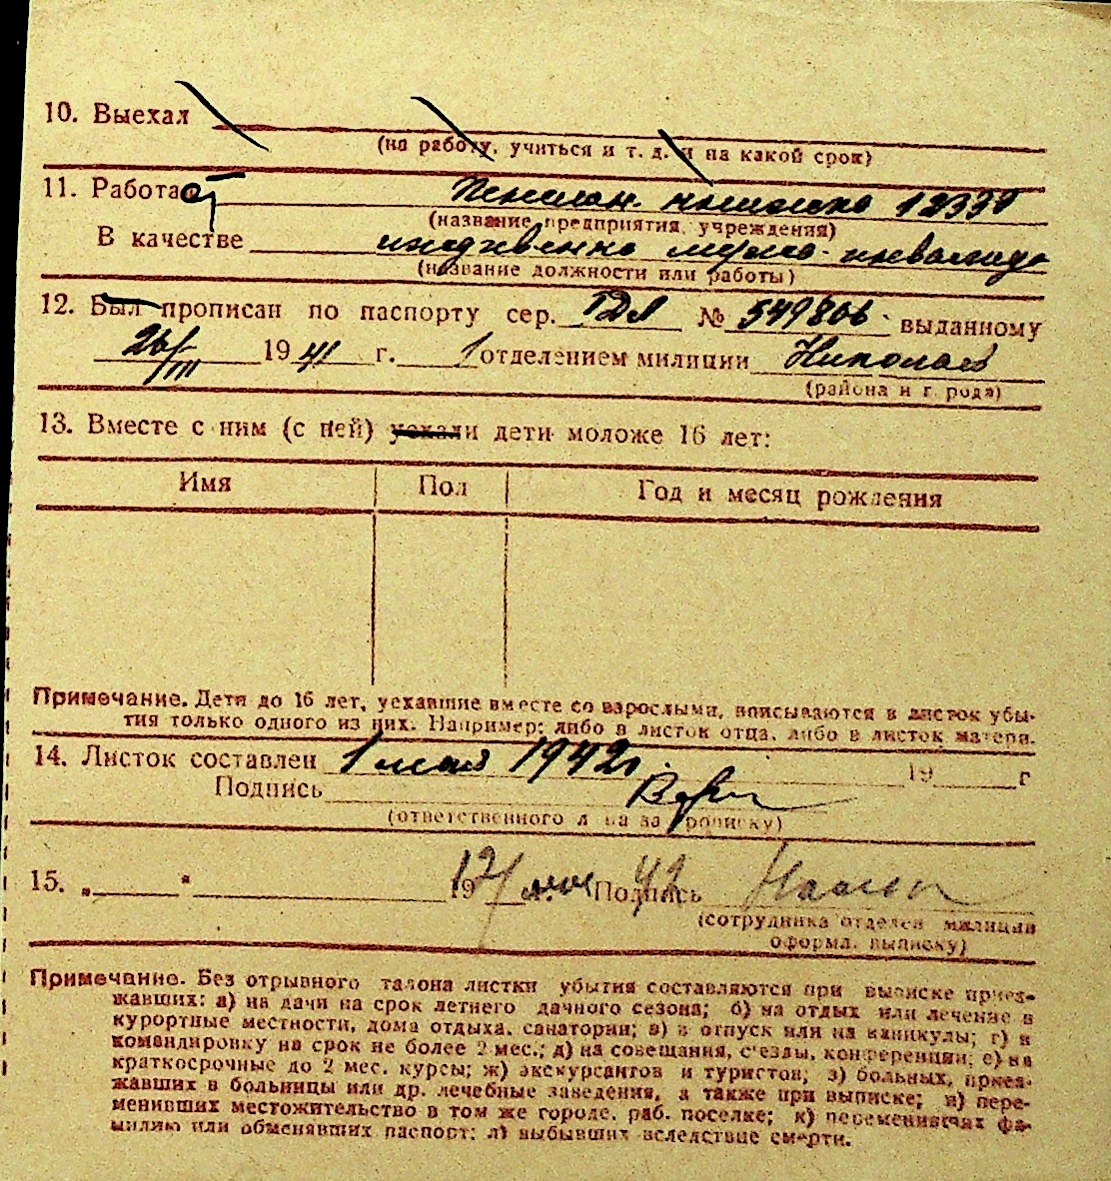 10. Выехал
(на работу, учиться и т. д. и на какой срок)
11. Работает 12330
(название предприятия, учреждения)
В качестве иждивенка мужа-инвалида
(название должности или работы)
12. Был прописан по паспорту сер. № 549806 выданному
26/III 1941 г. 1 отделением милиции Николаев
(района и города)
13. Вместе с ним (с ней) уехали дети моложе 16 лет:
Имя Пол Год и месяц рождения
Примечание. Дети до 16 лет, уехавшие вместе со взрослыми, вписываются в листок убы-
тия только одного из них. Например: либо в листок отца, либо в листок матери.
14. Листок составлен 1 1942 г. 19 г
Подпись
(ответственного лица за прописку)
15. „ " 12/ 19 г. 42 Подпись
(сотрудника отделен милиции
оформл. выписку)
Примечание. Без отрывного талона листки убытия составляются при выписке приез-
жавших: а) на дачи на срок летнего дачного сезона; б) на отдых или лечение в
курортные местности, дома отдыха, санатории; в) в отпуск или на каникулы; г) в
командировку на срок не более 2 мес.; д) на совещания, с'езды, конференции; е) на
краткосрочные до 2 мес. курсы; ж) экскурсантов и туристов; з) больных, приез-
жавших в больницы или др. лечебные заведения, а также при выписке; и) пере-
менивших местожительство в том же городе, раб. поселке; к) переменивших фа-
милию или обменявших паспорт; л) выбывших вследствие смерти.